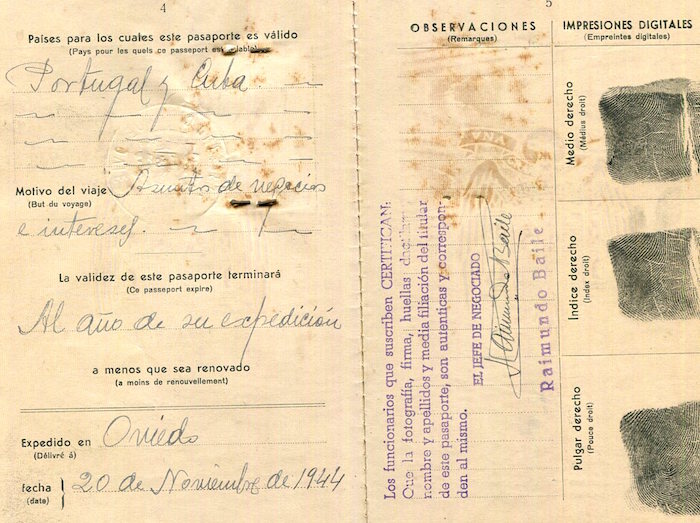 4
Países para los cuales este pasaporte es válido
(Pays pour les quels ce passeport est valable)
Portugal y Cuba.
Motivo del viaje Asuntos de negocios
(But du voyage)
e intereses.
La validez de este pasaporte terminará
(Ce passeport expire)
Al año de su expedición
a menos que sea renovado
(a moins de renouvellement)
Expedido en Oviedo
(Délivré á)
fecha 20 de Noviembre de 1944
(date)
5
OBSERVACIONES
(Remarques)
Los funcionarios que suscriben CERTIFICAN:
Que la fotografía, firma, huellas
nombre y apellidos y media filiación del titular
de este pasaporte, son autenticas y correspon-
den al mismo.
EL JEFE DE NEGOCIADO
Raimundo Baile
Raimundo Baile
IMPRESIONES DIGITALES
(Empreintes digitales)
Medio derecho
(Médius droit)
Indice derecho
(Index droit)
Pulgar derecho
(Pouce droit)